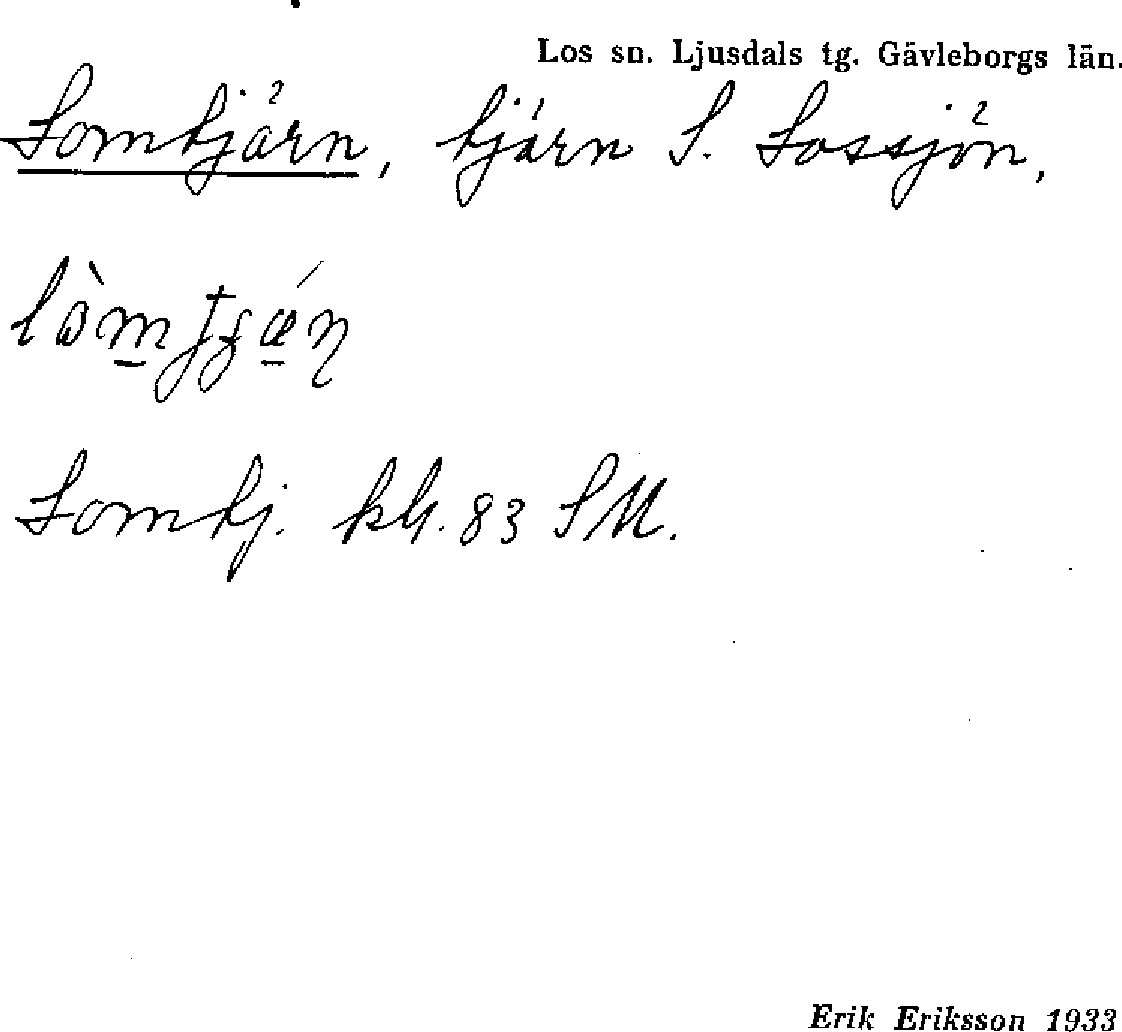 Los sn. Ljusdals tg. Gävleborgs län.
Lomtjärn, tjärn S. Lossjön,
Lomtj. kbl. 83 SM.
Erik Eriksson 1933